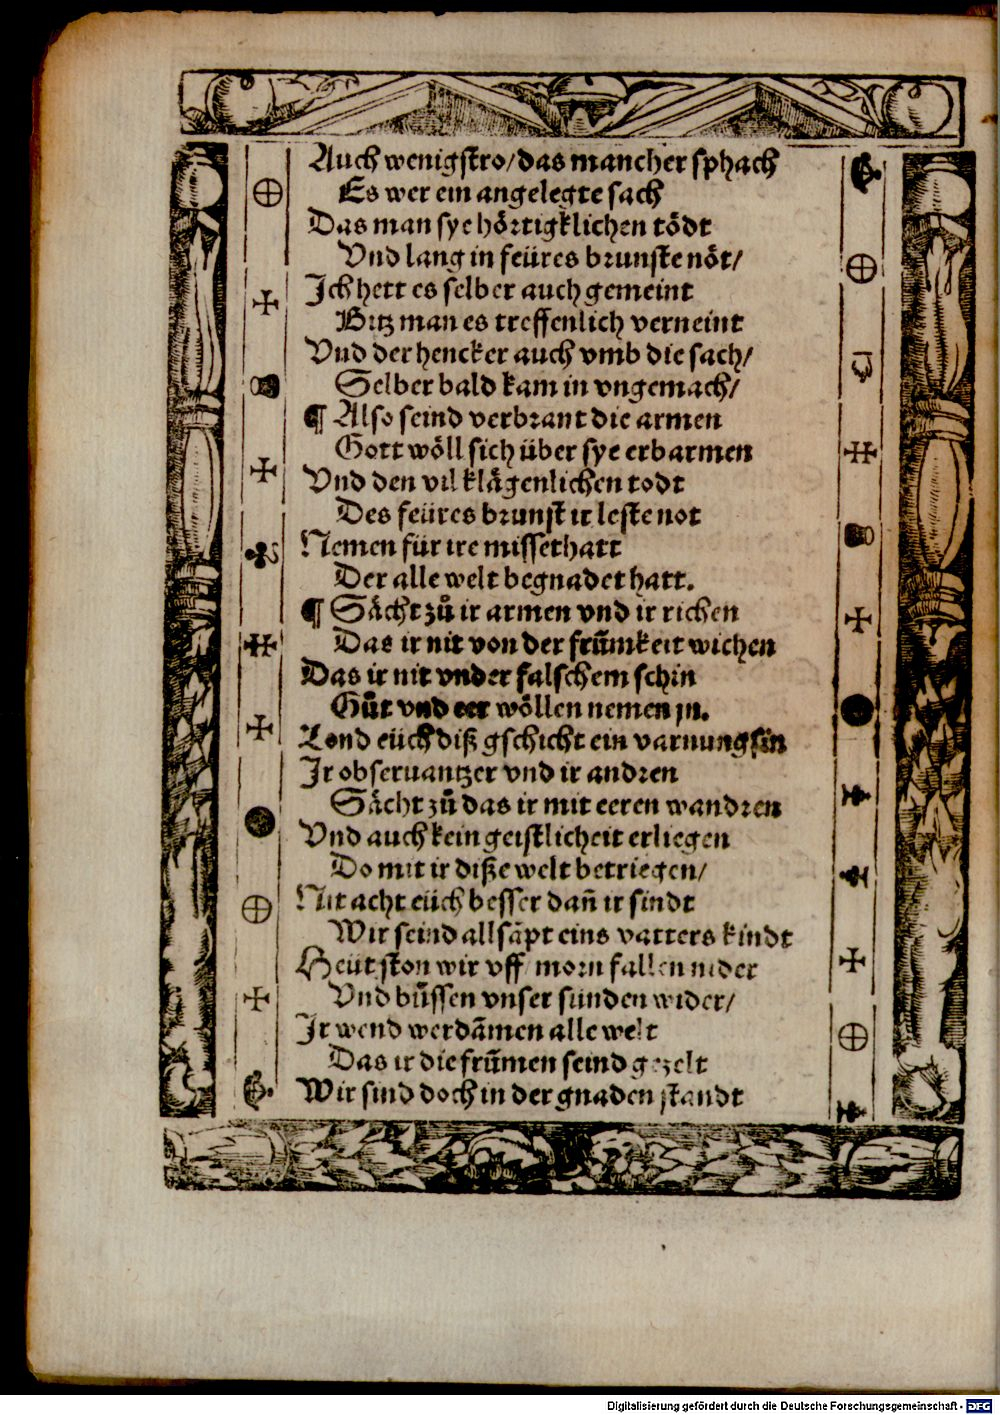 Auch wenig stro/das mancher sphach
Es wer ein angelegte sach
Das man sye hörtigklichen tödt
Vnd lang in feüres brunste nöt/
Ich hett es selber auch gemeint
Bitz man es treffenlich verneint
Vnd der hencker auch vmb die sach/
Selber bald kam in vngemach/
¶ Also seind verbrant die armen
Gott wöll sich über sye erbarmen
Vnd den vil klägenlichen todt
Des feüres brunst ir leste not
Nemen für ire missethatt
Der alle welt begnadet hatt.
¶ Sächt zů ir armen vnd ir richen
Das ir nit von der frūmkeit wichen
Das ir nit vnder falschem schin
Gůt vnd eer wöllen nemen jn.
Lond eüch diß gschicht ein varnung sin
Ir obseruantzer vnd ir andren
Sächt zů das ir mit eeren wandren
Vnd auch kein geistlicheit erliegen
Do mit ir diße welt betriegen/
Nit acht eüch besser dañ ir sindt
Wir seind all sāpt eins vatters kindt
Heüt ston wir vff morn fallen nider
Vnd bůssen vnser sünden wider/
Ir wend werdāmen alle welt
Das ir die frūmen seind gezelt
Wir sind doch in der gnaden standt
Digitalisierung gefördert durch die Deutsche Forschungsgemeinschaft - DFG